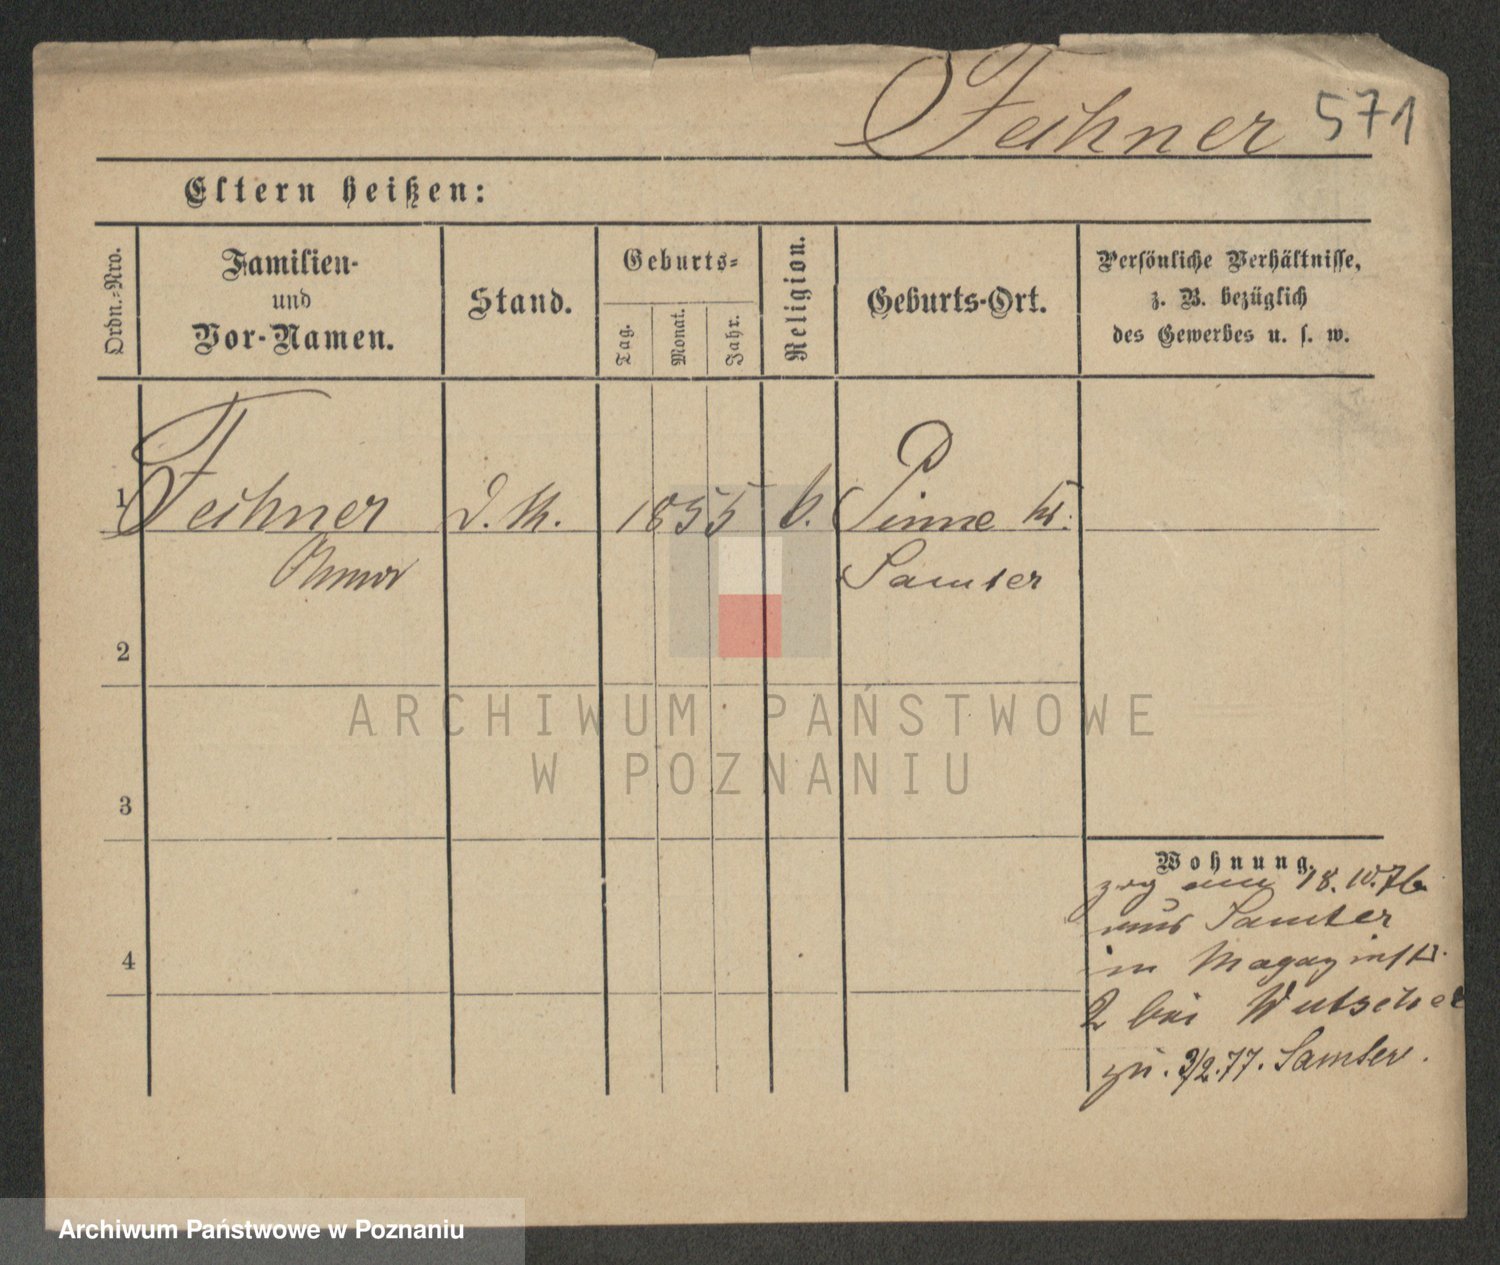 Feihner 571
Eltern heißen:
Ordn.-Nro.
Familien-
und
Vor-Namen.
Stand.
Geburts-
Tag.
Monat.
Jahr.
Religion.
Geburts-Ort.
Persönliche Verhältnisse,
z. B. bezüglich
des Gewerbes u. s. w.
1 Feihner D. M. 1855 k. Pinne Kr.
Samter
2
3
4
Wohnung.
zog am 18.10.76
aus Samter
im Magazinstr.
2 bei Wutscher
zu. 3/2.77. Samter.
ARCHIWUM PAŃSTWOWE
W POZNANIU
Archiwum Państwowe w Poznaniu